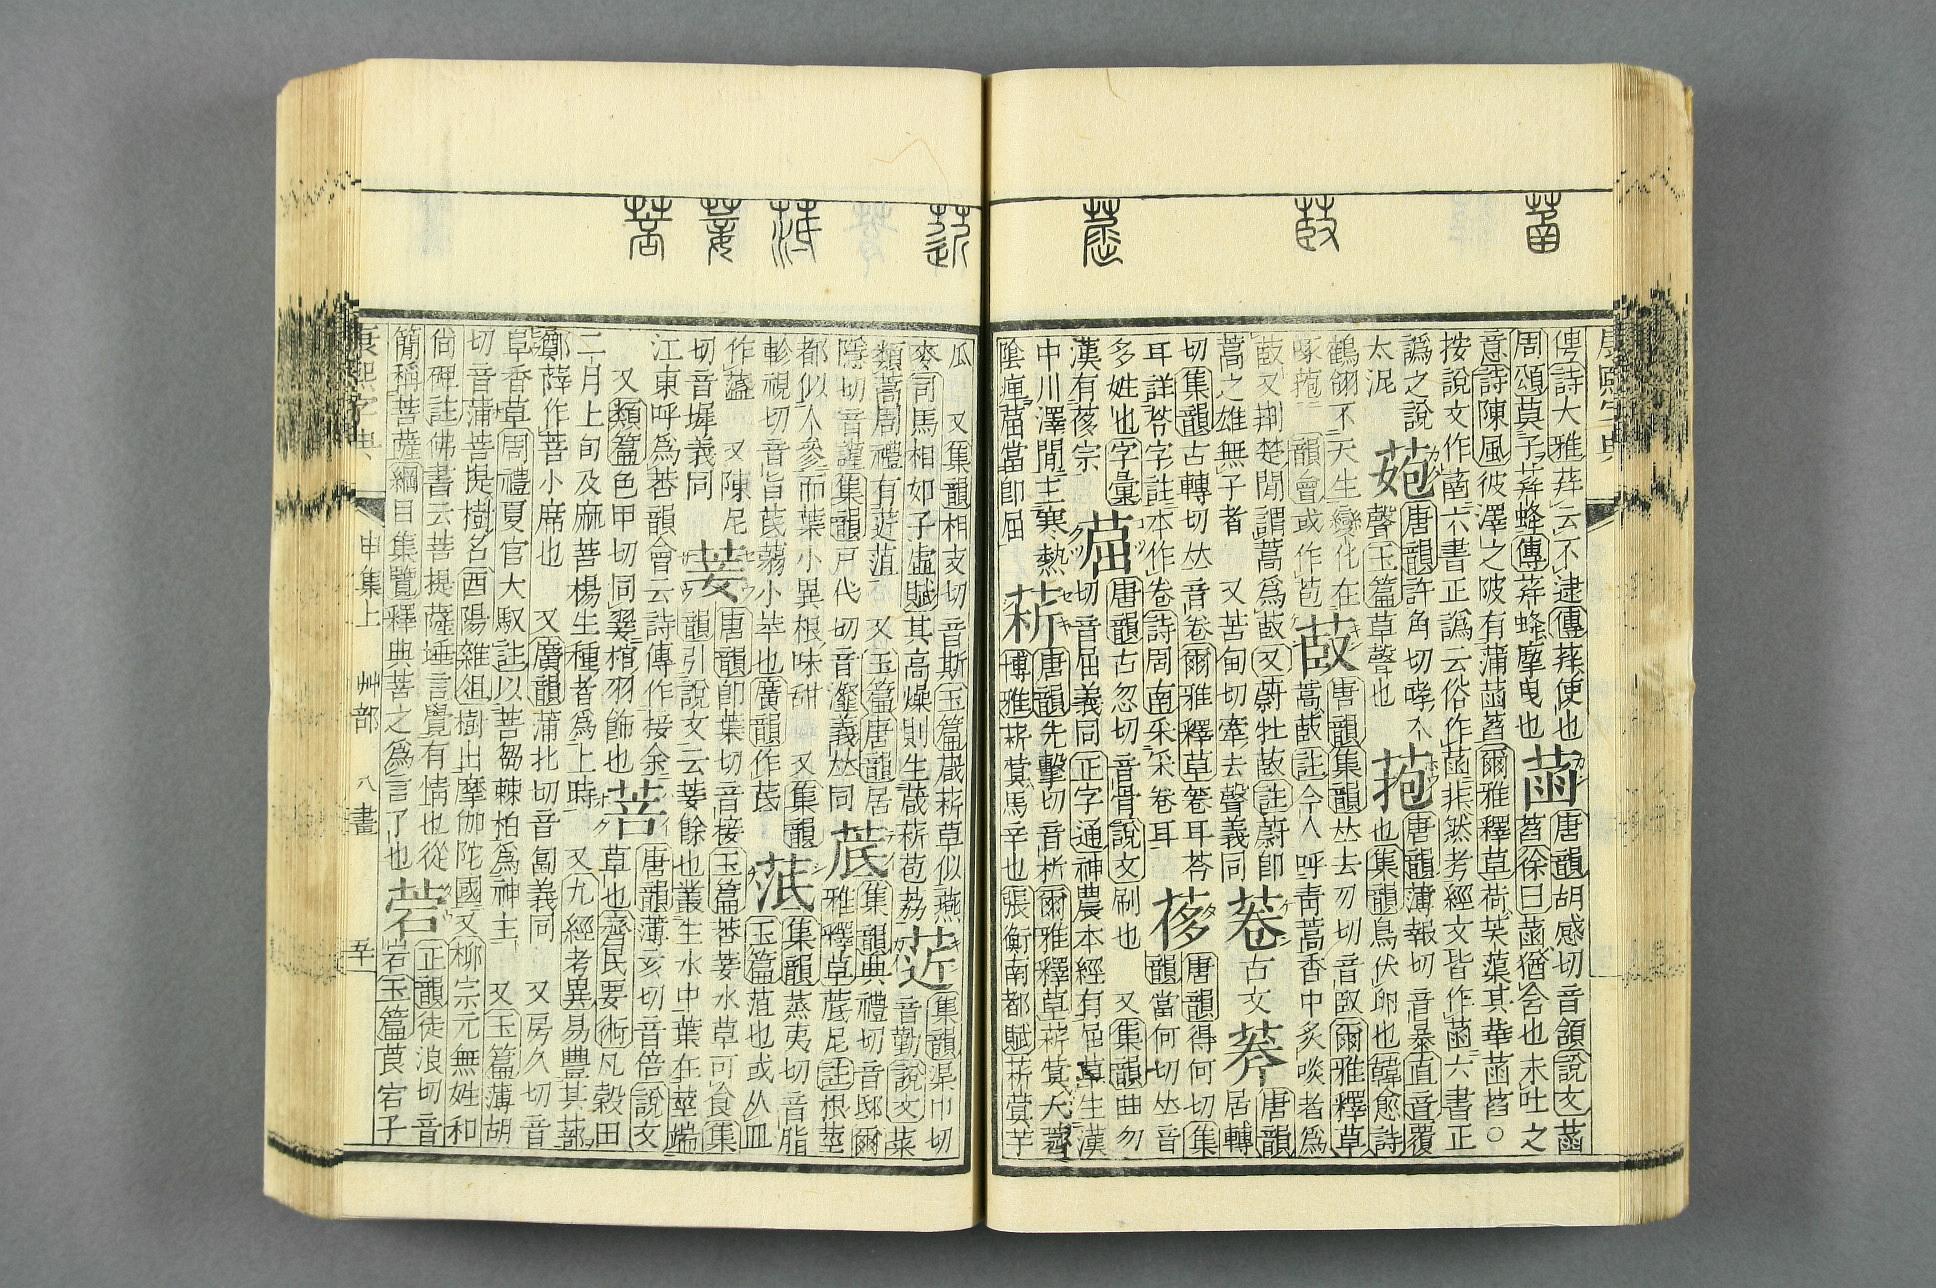 康熙字典
俜詩大雅荓云不逮傳荓使也
周頌莫予荓蜂傳荓蜂摩曳也
菡
唐韻胡感切音頷說文菡
萏徐曰菡猶含也未吐之
意詩陳風彼澤之陂有蒲菡萏爾雅釋草荷芙蕖其華菡萏○
按說文作菡六書正譌云俗作菡非然考經文皆作菡六書正
譌之說
太泥
唐韻許角切哮入
聲玉篇草聲也
菢
唐韻薄報切音暴直音覆
也集韻鳥伏卵也韓愈詩
鶴翎不天生變化在
啄菢 韻會或作苞
菣
唐韻集韻𠀤去刃切音臤爾雅釋草
蒿菣註今人呼靑蒿香中炙啖者爲
菣又荆楚閒謂蒿爲菣又蔚牡菣註蔚卽
蒿之雄無子者 又苦甸切牽去聲義同
菤
古文
唐韻
居轉
切集韻古轉切𠀤音卷爾雅釋草菤耳苓
耳詳苓字註本作卷詩周南采采卷耳
唐韻得何切集
韻當何切𠀤音
多姓也字彙
漢有 宗
䓛
唐韻古忽切音骨說文刷也 又集韻曲勿
切音屈義同正字通神農本經有屈草生漢
中川澤閒主寒熱
陰痺䓛當卽屈
菥
唐韻先擊切音析爾雅釋草菥蓂大薺
博雅菥蓂馬辛也張衡南都賦菥蓂芋
瓜 又集韻相支切音斯玉篇葴菥草似燕
麥司馬相如子虛賦其高燥則生葴菥苞荔
菦
集韻渠巾切
音勤說文菜
類蒿周禮有菦菹 又玉篇唐韻居
隱切音謹集韻戸代切音瀣義𠀤同
菧
集韻典禮切音邸爾
雅釋草菧苨註根莖
都似人參而葉小異根味甜 又集韻
軫視切音旨菧蒻小苹也廣韻作茋
集韻蒸夷切音脂
玉篇菹也或从皿
作 又陳尼
切音墀義同
菨
唐韻卽葉切音接玉篇菨水草可食集
韻引說文云菨餘也叢生水中葉在莖端
江東呼爲 韻會云詩傳作接余
又類篇色甲切同翣棺羽飾也
菩
唐韻薄亥切音倍說文
草也齊民要術凡穀田
二月上旬及麻菩楊生種者爲上時 又九經考異易豐其蔀
鄭薛作菩小席也 又廣韻蒲北切音匐義同 又房久切音
阜香草周禮夏官大馭註以菩芻棘柏爲神主 又玉篇薄胡
切音蒲菩提樹名酉陽雜俎樹出摩伽陀國又柳宗元無姓和
尚碑註佛書云菩提薩埵言覺有情也從
簡稱菩薩綱目集覽釋典菩之爲言了也
菪
正韻徒浪切音
宕玉篇莨宕子
康熙字典 申集上 艸部 八畫